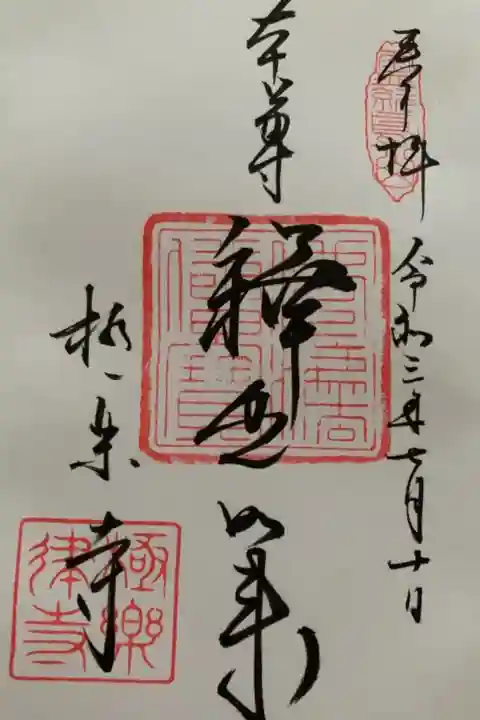 奉拝
令和三年七月十日
本尊
釈迦如来
極楽寺
極樂
律寺